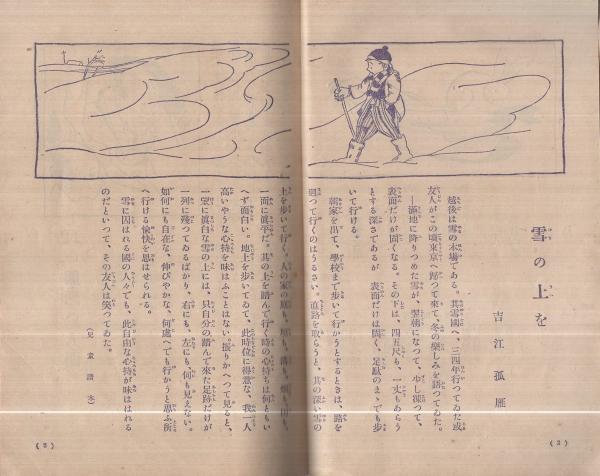 雪の上を
吉江孤雁
越後は雪の本場である。其雪國へ、三四年行つてゐた或
友人がこの頃東京へ歸つて來て、冬の樂しみを語つてゐた。
―滿地に降りつめた雪が、翌朝になつて、少し凍つて、
表面だけが固くなる。その下は、四五尺も、一丈もあらう
とする深さであるが 表面だけは固く、足駄のまゝでも歩
いて行ける。
朝家を出て、學校まで歩いて行かうとするときは、路を
つて行くのはうるさい。道路を取らうと、其の深い雪の
上を歩いて行く。人の家の
一面に眞平だ。其の上を踏んで行く時の心持ちは何ともい
へず面白い。地上を歩いてゐて、此時位に得意な、我一人
高いやうな心持を味はふことはない。振りかへつて見ると、
一望に眞白な雪の上には、只自分の踏んで來た足跡だけが
一列に殘つてゐるばかり、右にも、左にも何も見えない。
如何にも自在な、伸びやかな、何處へでも行かうと思ふ所
へ行ける愉快を思はせられる。
雪に囚はれる國の人々でも、此自由な心持が味はゝれる
のだといつて、その友人は笑つてゐた。
(兒童讀本)
(2)
(3)